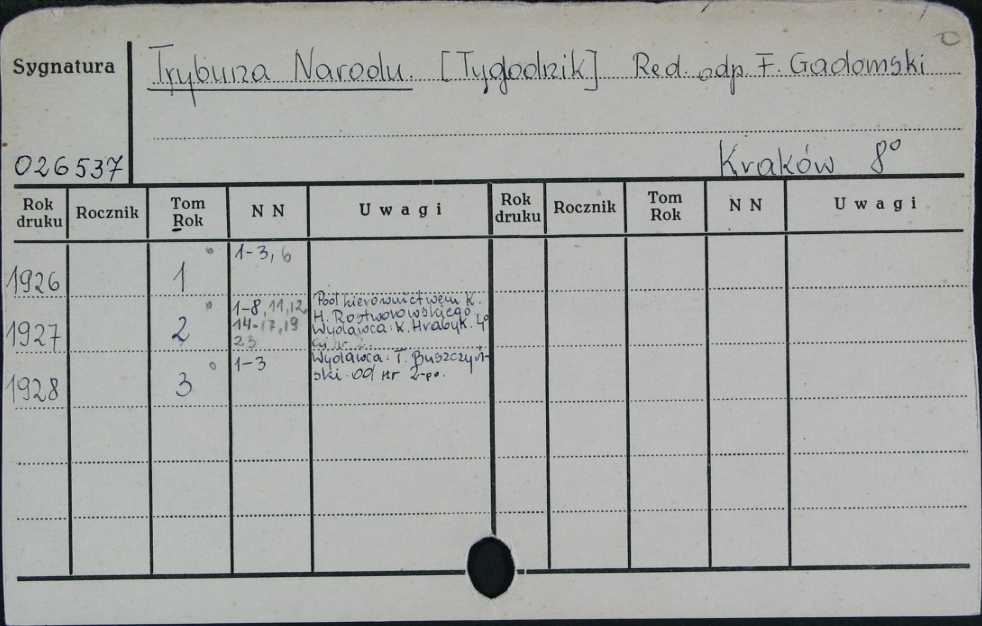 Sygnatura
Trybuna Narodu. [Tygodnik] Red. odp. F. Gadomski
026537
Kraków 8°
Rok druku Rocznik Tom Rok N N Uwagi Rok druku Rocznik Tom Rok N N Uwagi
1926 1 1-3, 6
1927 2 1-8, 11, 12, 14-17, 19 23 Pod kierownictwem K. H. Rostworowskiego Wydawca: K. Hrabyk. 4°
1928 3 1-3 Wydawca: T. Buszczyński od nr 2-po.